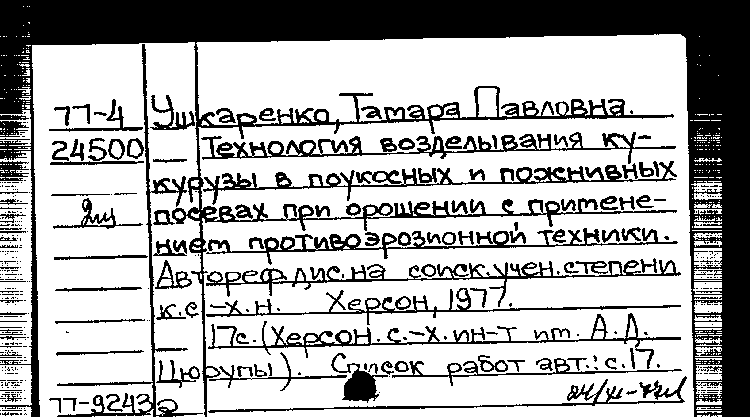 77-4 Ушкаренко, Тамара Павловна.
24500 Технология возделывания ку-
курузы в поукосных и пожнивных
2ш посевах при орошении с примене-
нием противоэрозионной техники.
Автореф.дис.на соиск.учен.степени
к.с-х.н. Херсон, 1977.
17с.(Херсон.с.-х.ин-т им. А.Д.
Цюрупы). Список работ авт.: с.17.
77-9243